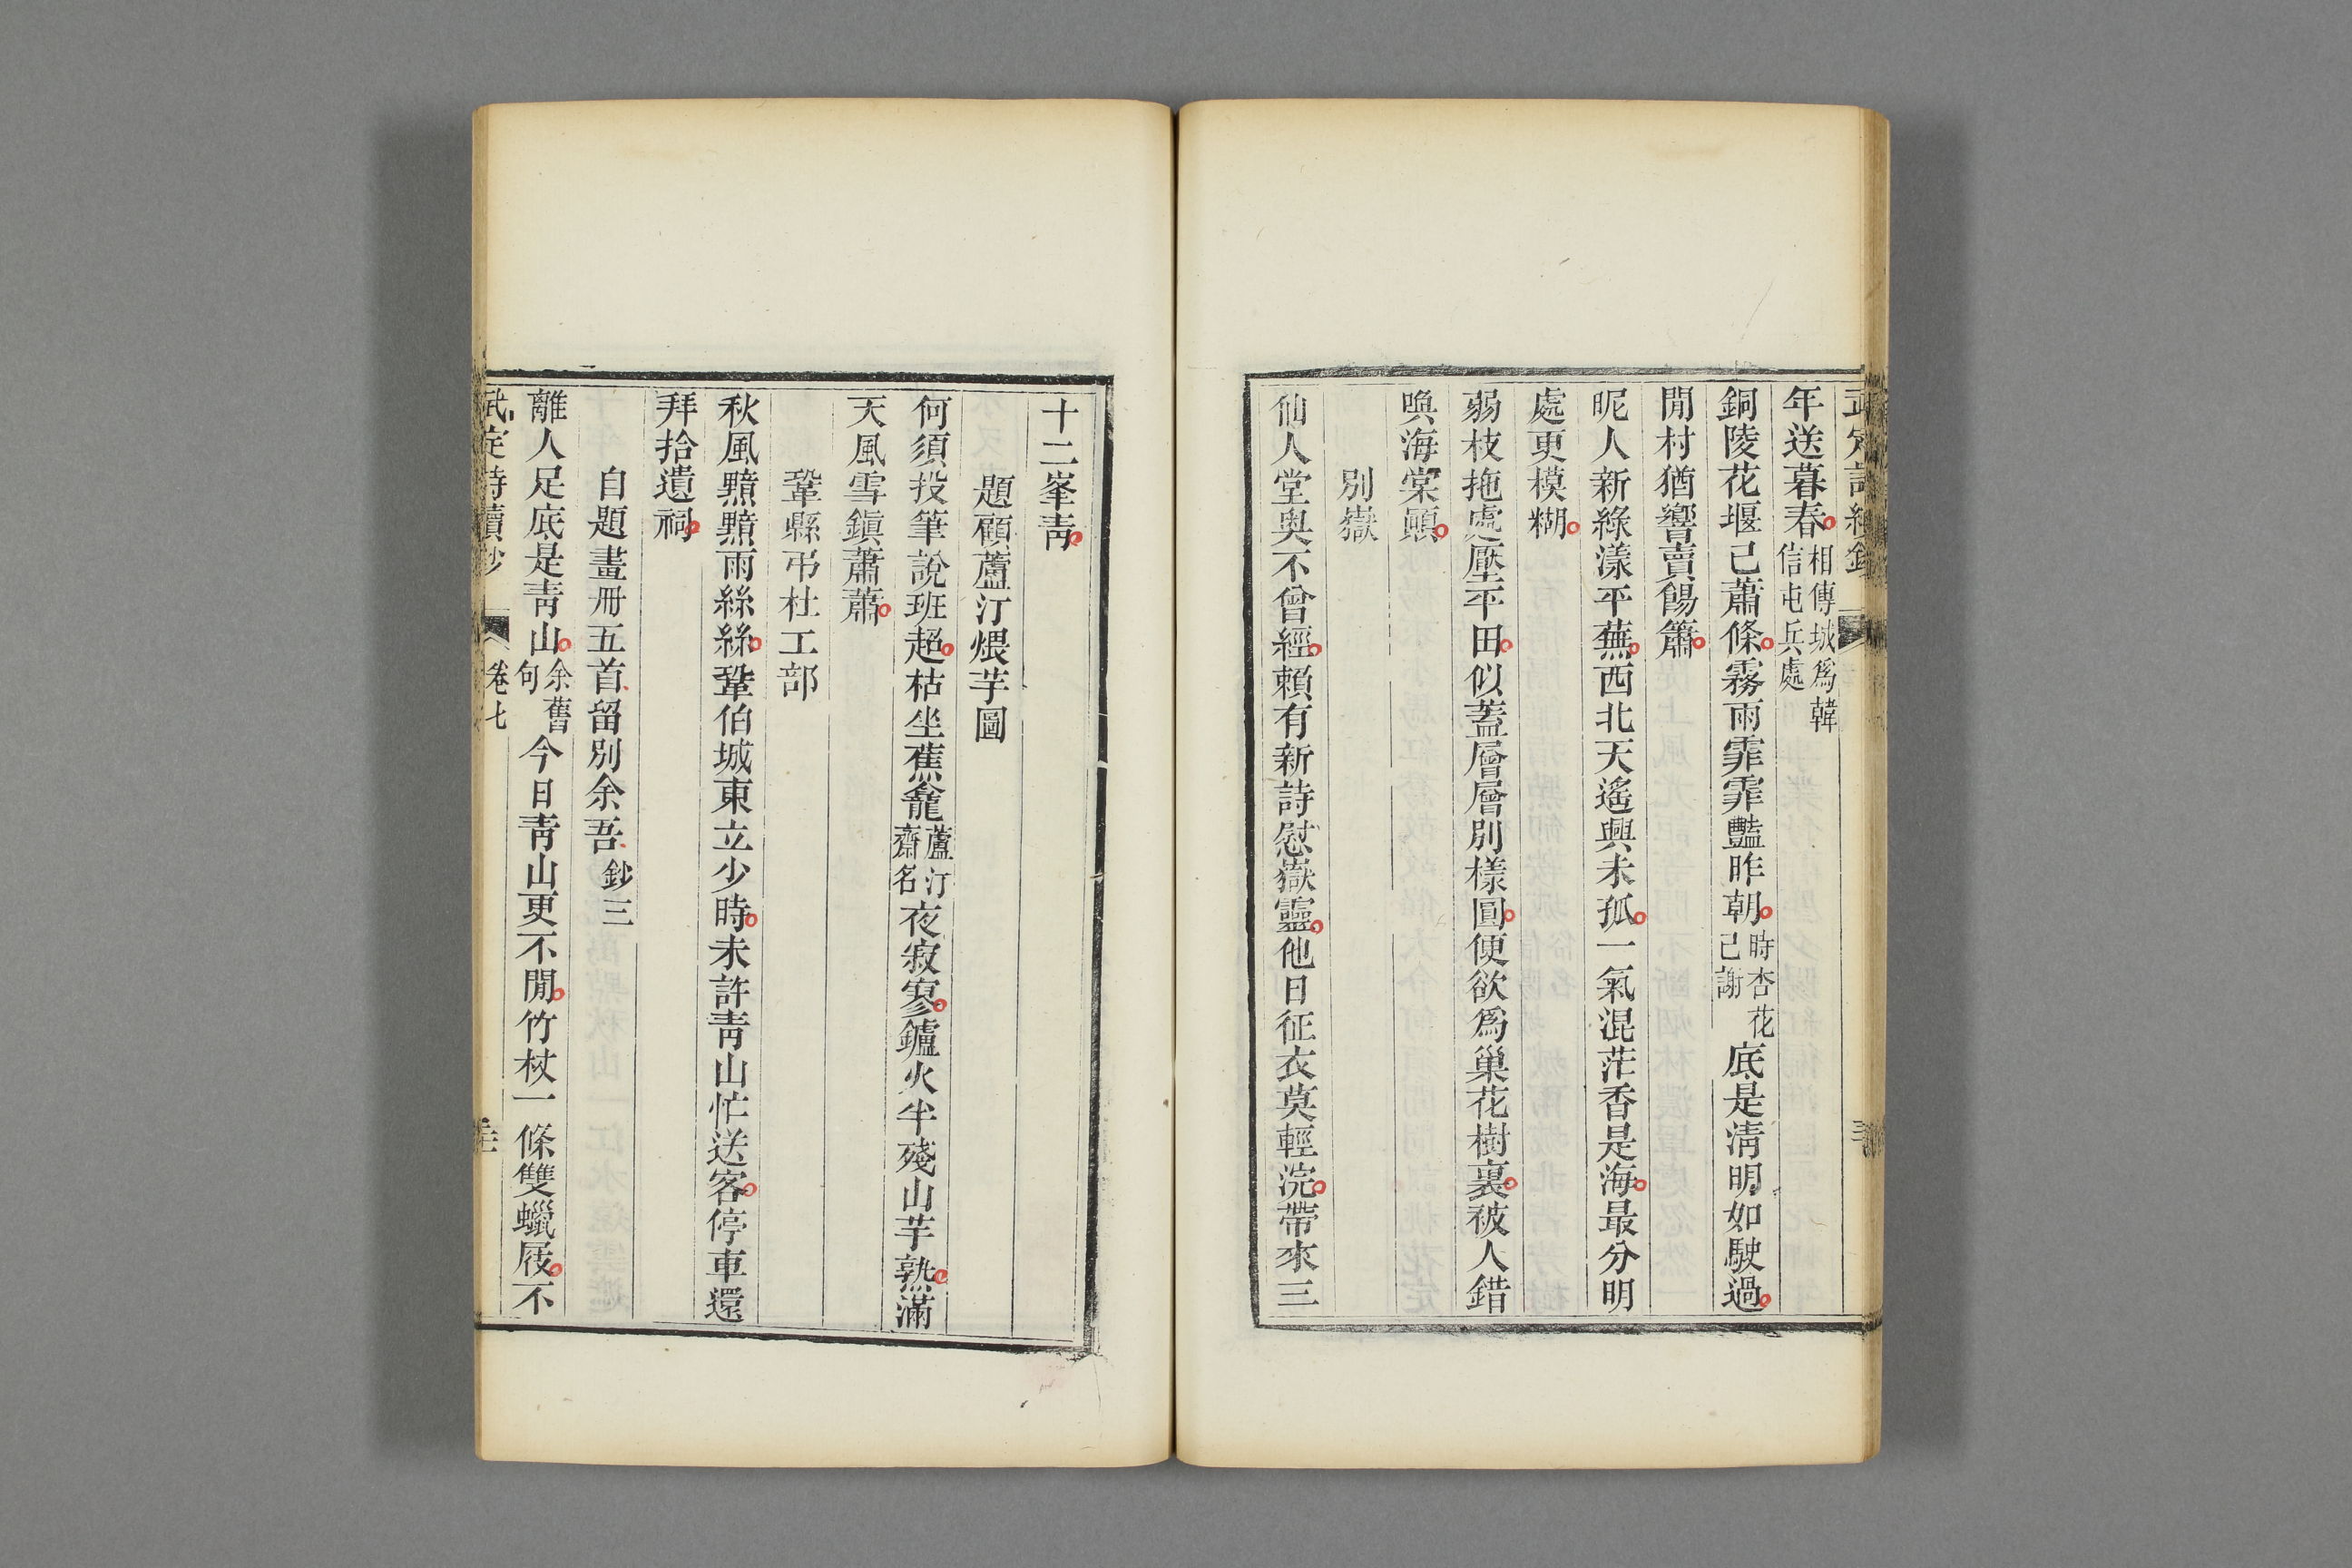 年送暮春相傳城爲韓信屯兵處
銅陵花堰已蕭條霧雨霏霏豔昨朝時杏花已謝底是淸明如駛過
閒村猶響賣餳簫
昵人新綠漾平蕪西北天遙興未孤一氣混茫香是海最分明
處更模糊
弱枝拖處壓平田似蓋層層別樣圓便欲爲巢花樹裏被人錯
喚海棠顚
別嶽
仙人堂奥不曾經賴有新詩慰嶽靈他日征衣莫輕浣帶來三
十二峯靑
題顧蘆汀煨芋圖
何須投筆說班超枯坐蕉龕蘆汀齋名夜寂寥鑪火半殘山芋熟滿
天風雪鎭蕭蕭
鞏縣弔杜工部
秋風黯黯雨絲絲鞏伯城東立少時未許靑山忙送客停車還
拜拾遺祠
自題畫冊五首留別余吾鈔三
離人足底是靑山余舊句今日靑山更不閒竹杖一條雙蠟屐不
武定詩續鈔 卷七